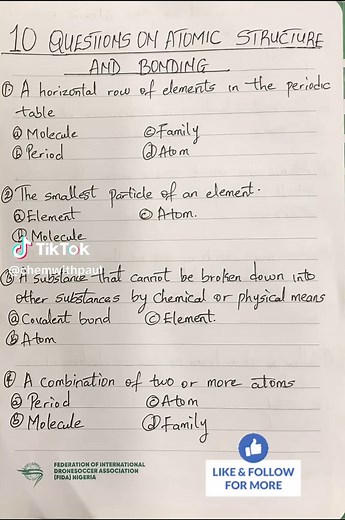 10 QUESTIONS ON ATOMIC STRUCTURE
AND BONDING
① A horizontal row of elements in the periodic
table
ⓐ Molecule ⓒ Family
ⓑ Period ⓓ Atom
② The smallest particle of an element.
ⓐ Element ⓒ Atom.
ⓑ Molecule
TikTok
@chemwithpaul
③ A substance that cannot be broken down into
other substances by chemical or physical means
ⓐ Covalent bond ⓒ Element.
ⓑ Atom
④ A combination of two or more atoms
ⓐ Period ⓒ Atom
ⓑ Molecule ⓓ Family
FEDERATION OF INTERNATIONAL
DRONESOCCER ASSOCIATION
(FIDA) NIGERIA
LIKE & FOLLOW
FOR MORE